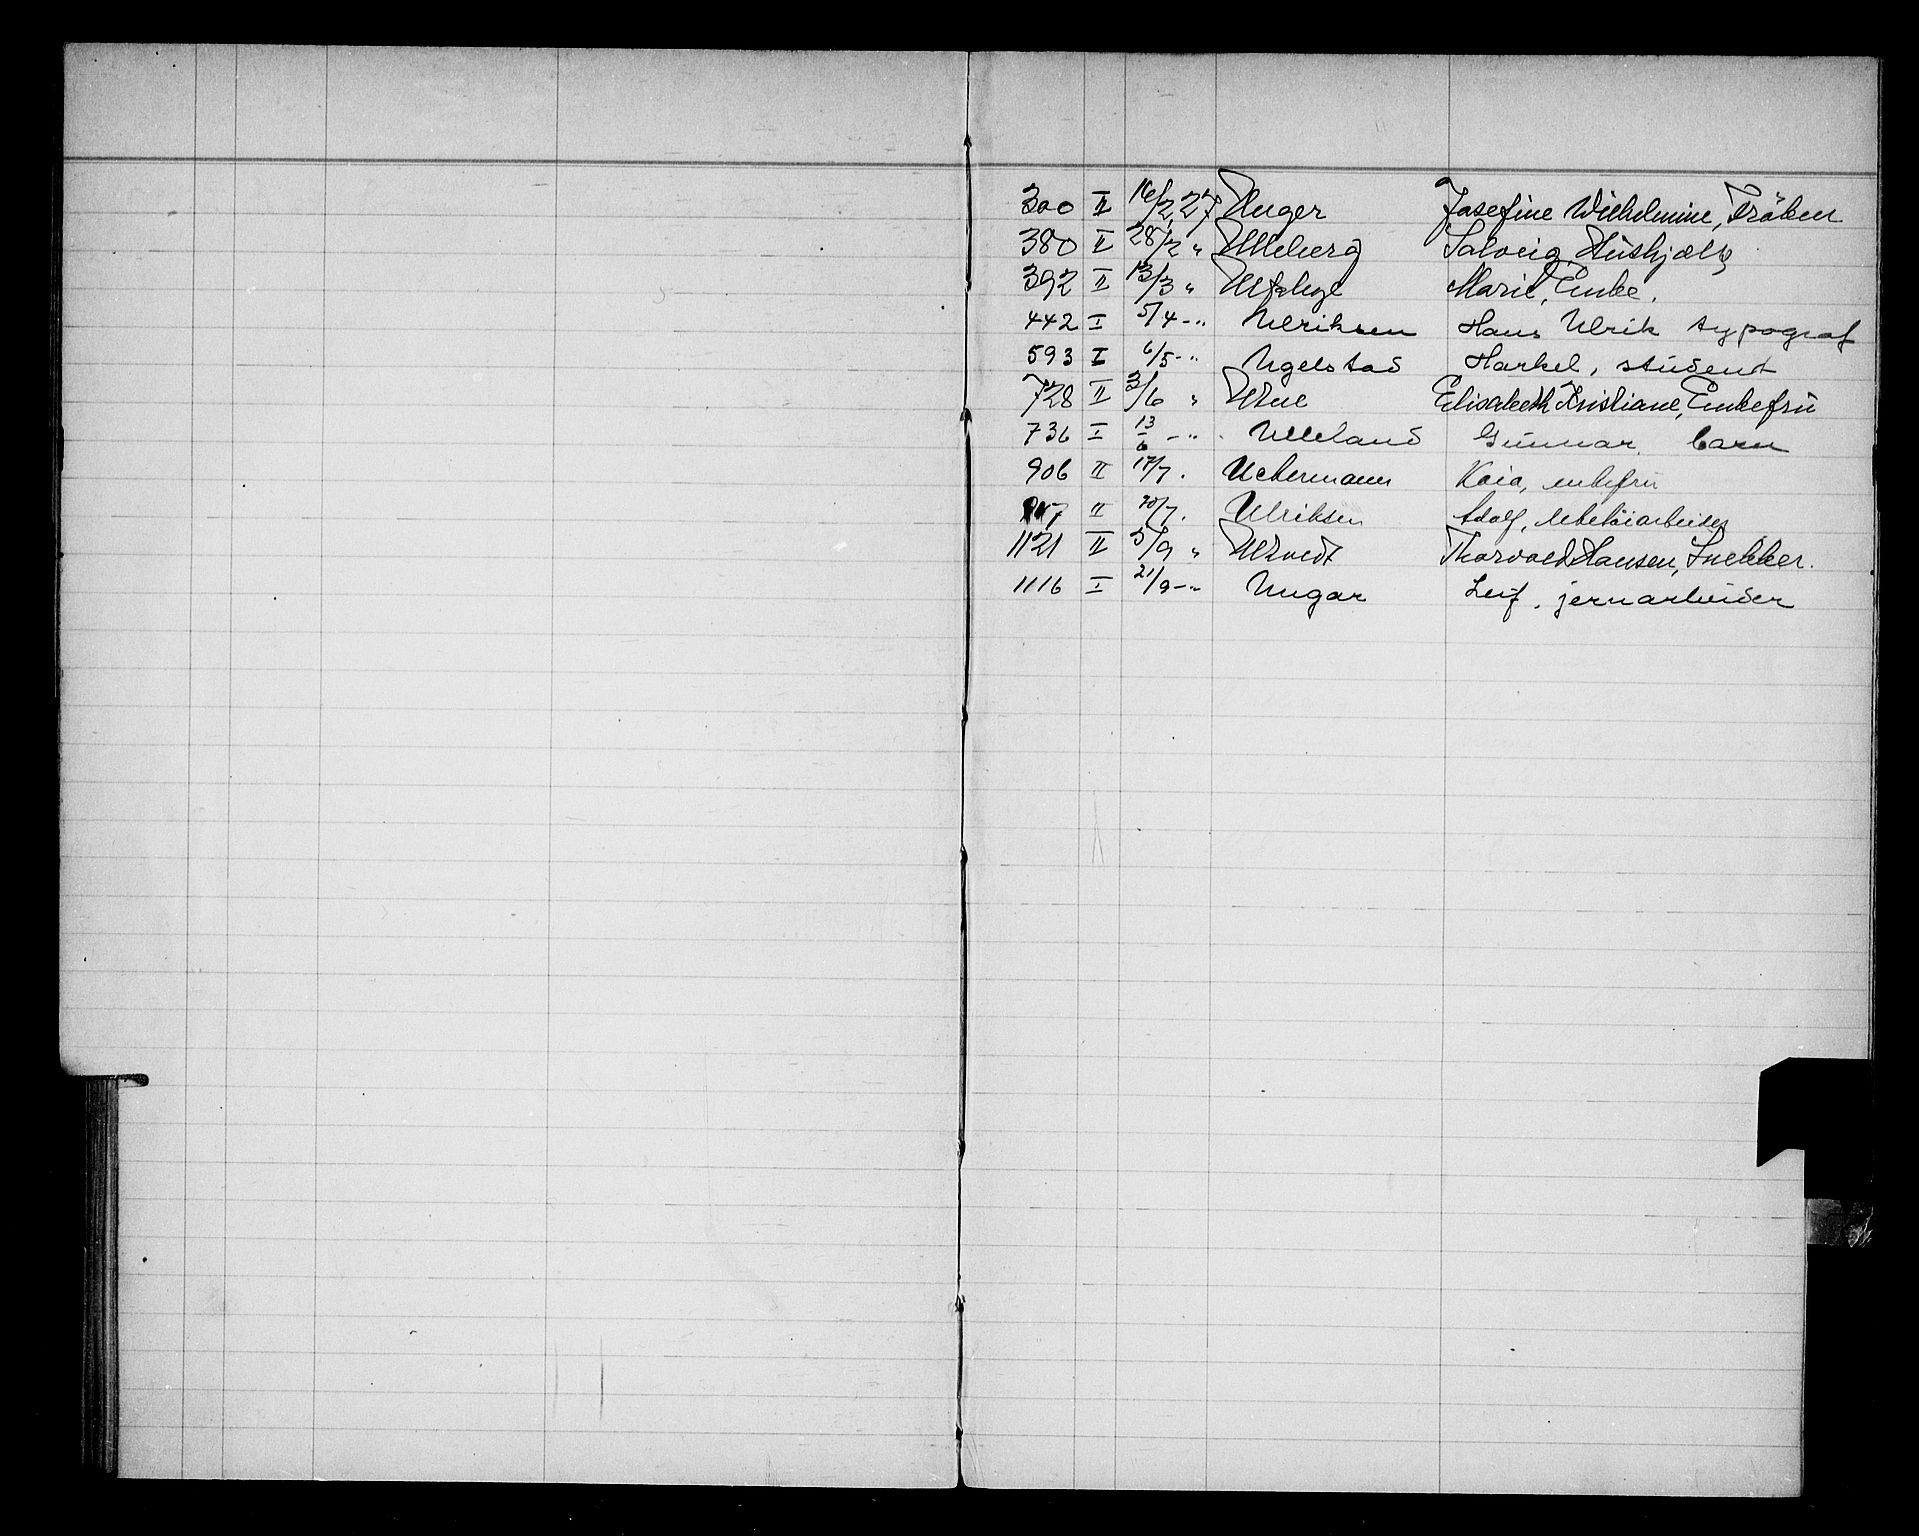 300 II 16/2 27 Unger Josefine Wilhelmine, Frøken
380 II 28/2 " Ulleberg Solveig, Hushjælp
392 II 13/3 " Marie, Enke.
442 I 5/4 - " Ulriksen Hans Ulrik typograf
593 I 6/5 - " Ugelstad student
728 II 3/6 " Utne Elisabeth Kristiane, Enkefru
736 I 13/6 - " Ulleland Gunnar. barn
906 II 17/7. Uchermann Kaia, enkefru
II 20/7. Ulriksen Adolf,
1121 II 5/9 " Ultvedt Thorvald Hansen, Snekker.
1116 I 21/9 - " Ungar Leif, jernarbeider